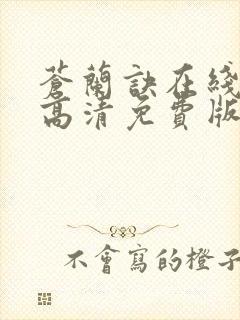 蒼蘭訣在綫
高清免費版
不會寫的橙子